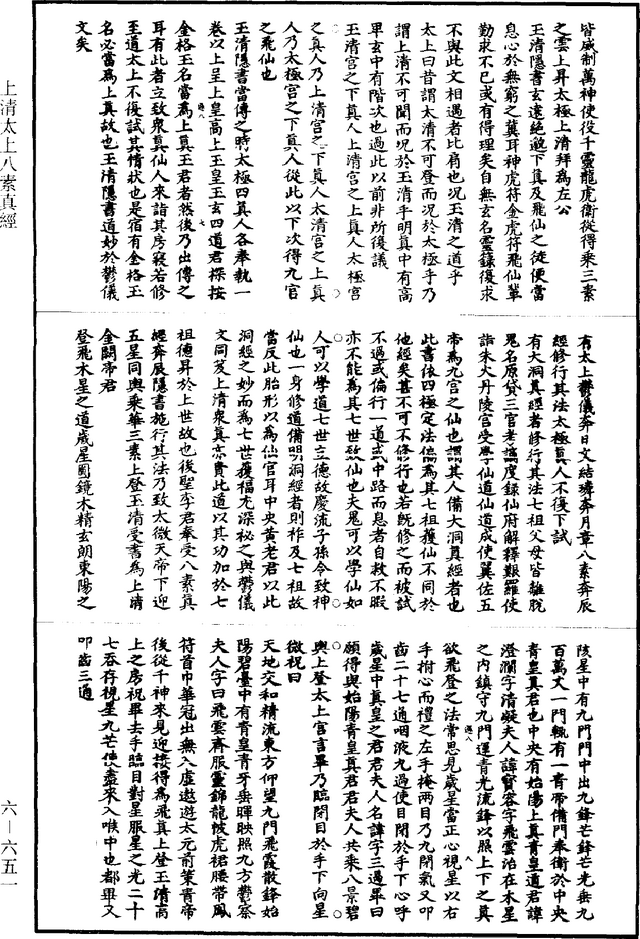 上清太上八素真經
六—六五一
皆威制萬神使役千靈龍虎衛從得乘三素
之雲上昇太極上清拜為左公
玉清隱書玄遠絶邈下真及飛仙之徒便當
息心於無窮之冀耳神虎符金虎符飛仙輩
勤求不已或有得理矣自無玄名靈籙復求
不與此文相遇者比肩也况玉清之道乎
太上曰昔謂太清不可登而况於太極乎乃
謂上清不可聞而况於玉清乎明真中有高
卑玄中有階次也過此以前非所後議
玉清宫之下真人上清宫之上真人太極宫
之真人乃上清宫之下真人太清宫之上真
人乃太極宫之下真人從此以下次得九宫
之飛仙也
玉清隱書當傳之時太極四真人各奉執一
卷以上呈上皇高上玉皇玉玄四道君探按
金格玉名當為上真玉君者然後乃出傳之
耳有此者立致衆真仙人來詣其房寢若修
至道太上不復試其情狀也是宿有金格玉
名必當為上真故也玉清隱書道妙於鬱儀
文矣
有太上鬱儀奔日文結璘奔月章八素奔辰
經修行其法太極真人不復下試
有大洞真經者修行其法七祖父母皆離脫
鬼名原貸三官考讁度録仙府解釋艱羅使
詣朱火丹陵宫受學仙道仙道成使翼佐五
帝為九宫之仙也謂其人備大洞真經者也
此書依四極定法偏為其七祖獲仙不同於
他經矣甚不可不修行也若既修之而被試
不過或偏行一道或中路而息者自救不暇
亦不能為其七世致仙也夫鬼可以學仙如
人可以學道七世立德故慶流子孫令致神
仙也一身修道備明洞經者則祚及七祖故
當反此胎形以為仙官耳中央黄老君以此
洞經之妙而為七世獲福尤深秘之與鬱儀
文同笈上清衆真亦貴此道以其功加於七
祖德昇於上世故也後聖李君奉受八素真
經奔辰隱書施行其法乃致太微天帝下迎
五星同輿乘華三素上登玉清受書為上清
金闕帝君
登飛木星之道歲星圓鏡木精玄朗東陽之
陔星中有九門門中出九鋒芒鋒芒光垂九
百萬丈一門輒有一青帝備門奉衛於中央
青皇真君也中央有始陽上真青皇道君諱
澄瀾字清凝夫人諱寳容字飛雲治在木星
之内鎮守九門運青光流鋒以照上下之真
欲飛登之法常思見歲星當正心視星以右
手拊心而禮之左手掩兩目乃九閉氣又叩
齒二十七過咽液九過使目閉於手下心呼
歲星中真皇之君君夫人名諱字三過畢曰
願得與始陽青皇真君君夫人共乘八景碧
輿上登太上宫言畢乃臨閉目於手下向星
微祝曰
天地交和精流東方仰望九門飛霞散鋒始
陽碧臺中有青皇青牙垂暉映照九方鬱察
夫人字曰飛雲齊服靈錦龍帔虎裙腰帶鳳
符首巾華冠出無入虚遨遊太元前策青帝
後從千神來見迎接得為飛真上登玉清高
上之房祝畢去手臨目對星服星之光二十
七吞存視星九芒使盡來入喉中也都畢又
叩齒三通